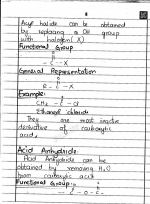 Acyl halide can be obtained
by replacing a OH group
with halogen (X)
Functional Group
O
- C - X
General Representation
O
R - C - X
Example:
O
CH3 - C - Cl
Ethanoyl chloride
They are most reactive
derivative of carboxylic
acids
Acid Anhydride:
Acid Anhydride can be
obtained by removing H2O
from carboxylic acid
Functional Group:-
O O
- C - O - C -